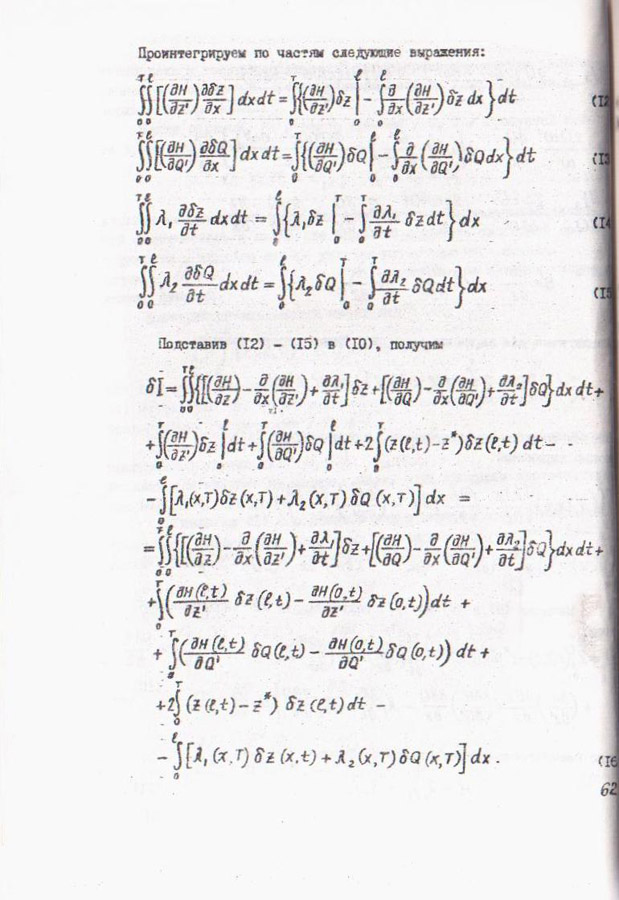 Проинтегрируем по частям следующие выражения:
∫₀ᵀ∫₀ˡ[(∂H/∂z')∂δz/∂x] dxdt = ∫₀ᵀ{(∂H/∂z')δz|₀ˡ − ∫₀ˡ ∂/∂x(∂H/∂z')δz dx}dt (I2
∫₀ᵀ∫₀ˡ[(∂H/∂Q')∂δQ/∂x] dxdt = ∫₀ᵀ{(∂H/∂Q')δQ|₀ˡ − ∫₀ˡ ∂/∂x(∂H/∂Q')δQdx}dt (I3
∫₀ᵀ∫₀ˡ λ₁ ∂δz/∂t dxdt = ∫₀ˡ{λ₁δz|₀ᵀ − ∫₀ᵀ ∂λ₁/∂t δzdt}dx (I4
∫₀ᵀ∫₀ˡ λ₂ ∂δQ/∂t dxdt = ∫₀ˡ{λ₂δQ|₀ᵀ − ∫₀ᵀ ∂λ₂/∂t δQdt}dx (I5
Подставив (I2) – (I5) в (I0), получим
δI = ∫₀ᵀ∫₀ˡ{[(∂H/∂z) − ∂/∂x(∂H/∂z') + ∂λ₁/∂t]δz + [(∂H/∂Q) − ∂/∂x(∂H/∂Q') + ∂λ₂/∂t]δQ}dxdt +
+ ∫₀ᵀ(∂H/∂z')δz|₀ˡdt + ∫₀ᵀ(∂H/∂Q')δQ|₀ˡdt + 2∫₀ᵀ(z(ℓ,t) − z*)δz(ℓ,t) dt −
− ∫₀ˡ[λ₁(x,T)δz(x,T) + λ₂(x,T) δQ(x,T)] dx =
= ∫₀ᵀ∫₀ˡ{[(∂H/∂z) − ∂/∂x(∂H/∂z') + ∂λ₁/∂t]δz + [(∂H/∂Q) − ∂/∂x(∂H/∂Q') + ∂λ₂/∂t]δQ}dxdt +
+ ∫₀ᵀ(∂H(ℓ,t)/∂z' δz(ℓ,t) − ∂H(0,t)/∂z' δz(0,t))dt +
+ ∫₀ᵀ(∂H(ℓ,t)/∂Q' δQ(ℓ,t) − ∂H(0,t)/∂Q' δQ(0,t)) dt +
+ 2∫₀ᵀ(z(ℓ,t) − z*) δz(ℓ,t) dt −
− ∫₀ˡ[λ₁(x,T) δz(x,t) + λ₂(x,T) δQ(x,T)] dx. (I6
62